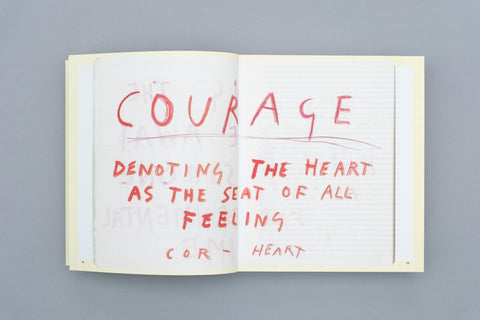 COURAGE
DENOTING THE HEART
AS THE SEAT OF ALL
FEELING
COR - HEART